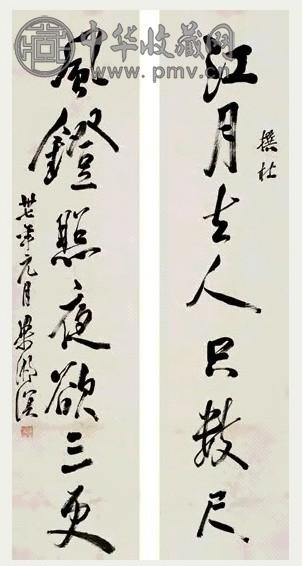 中华收藏网
www.pmv.cn
撰杜
江月去人只数尺
風鐙照夜欲三更
卅七年元月 梁漱溟